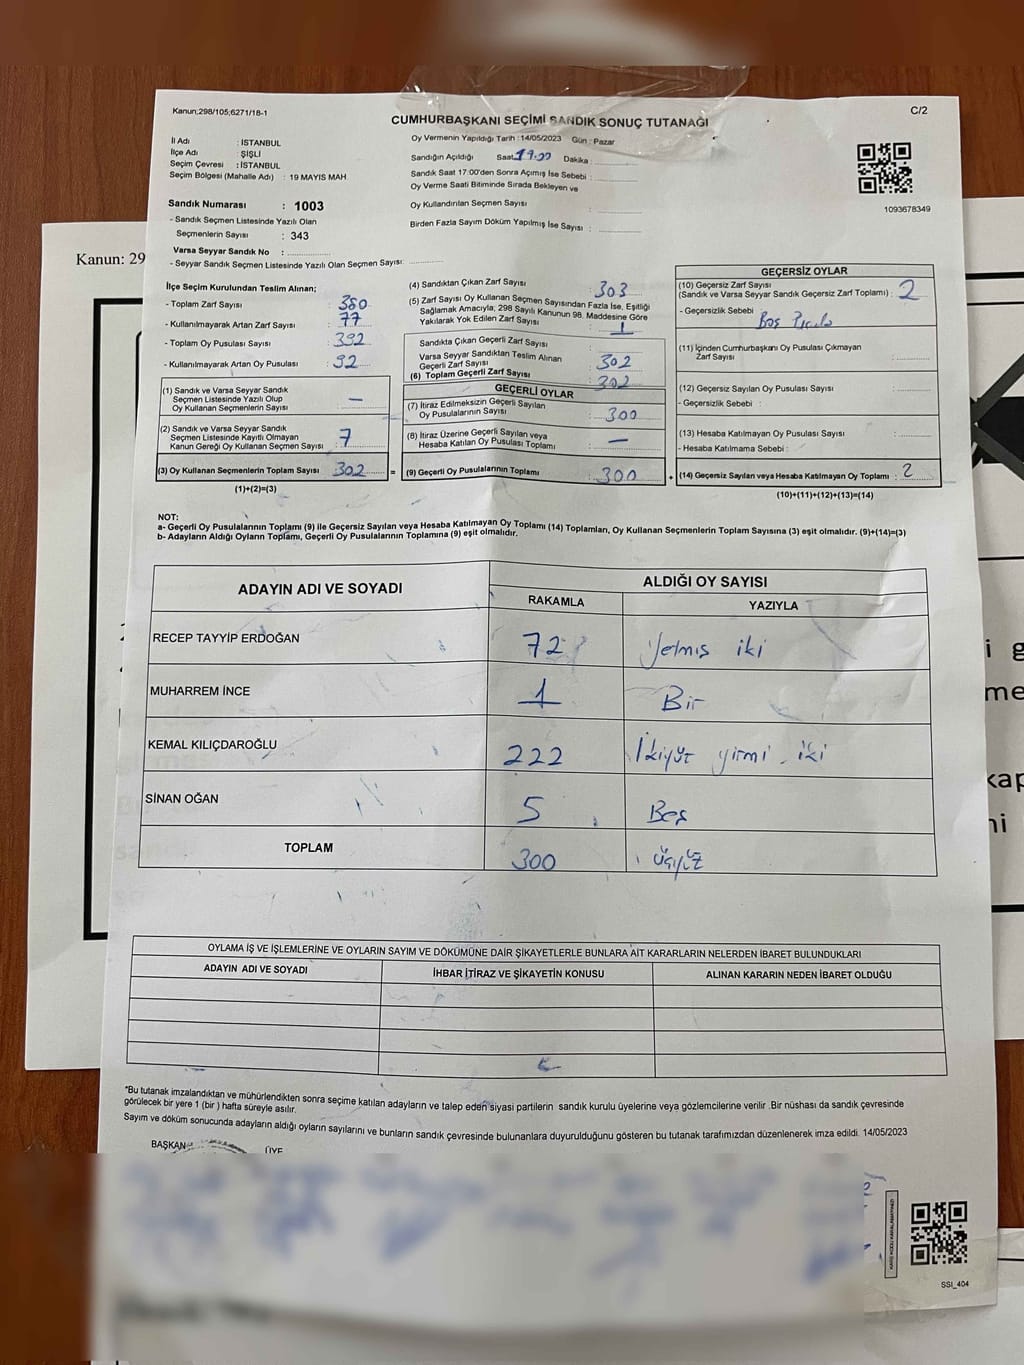 Kanun;298/105;6271/18-1
C/2
CUMHURBAŞKANI SEÇİMİ SANDIK SONUÇ TUTANAĞI
İl Adı : İSTANBUL
İlçe Adı : ŞİŞLİ
Seçim Çevresi : İSTANBUL
Seçim Bölgesi (Mahalle Adı) : 19 MAYIS MAH
Sandık Numarası : 1003
- Sandık Seçmen Listesinde Yazılı Olan
Seçmenlerin Sayısı : 343
Varsa Seyyar Sandık No :
- Seyyar Sandık Seçmen Listesinde Yazılı Olan Seçmen Sayısı:
Oy Vermenin Yapıldığı Tarih :14/05/2023 Gün : Pazar
Sandığın Açıldığı Saat Dakika :
Sandık Saat 17:00'den Sonra Açımış İse Sebebi :
Oy Verme Saati Bitiminde Sırada Bekleyen ve
Oy Kullandırılan Seçmen Sayısı :
Birden Fazla Sayım Döküm Yapılmış İse Sayısı :
1093678349
Kanun: 29
İlçe Seçim Kurulundan Teslim Alınan;
- Toplam Zarf Sayısı : 380
- Kullanılmayarak Artan Zarf Sayısı : 77
- Toplam Oy Pusulası Sayısı : 392
- Kullanılmayarak Artan Oy Pusulası : 92
(1) Sandık ve Varsa Seyyar Sandık
Seçmen Listesinde Yazılı Olup
Oy Kullanan Seçmenlerin Sayısı : —
(2) Sandık ve Varsa Seyyar Sandık
Seçmen Listesinde Kayıtlı Olmayan
Kanun Gereği Oy Kullanan Seçmen Sayısı : 7
(3) Oy Kullanan Seçmenlerin Toplam Sayısı : 302 =
(1)+(2)=(3)
(4) Sandıktan Çıkan Zarf Sayısı : 303
(5) Zarf Sayısı Oy Kullanan Seçmen Sayısından Fazla İse, Eşitliği
Sağlamak Amacıyla, 298 Sayılı Kanunun 98. Maddesine Göre
Yakılarak Yok Edilen Zarf Sayısı : 1
Sandıkta Çıkan Geçerli Zarf Sayısı :
Varsa Seyyar Sandıktan Teslim Alınan
Geçerli Zarf Sayısı : 302
(6) Toplam Geçerli Zarf Sayısı : 302
GEÇERLİ OYLAR
(7) İtiraz Edilmeksizin Geçerli Sayılan
Oy Pusulalarının Sayısı : 300
(8) İtiraz Üzerine Geçerli Sayılan veya
Hesaba Katılan Oy Pusulası Toplamı : —
(9) Geçerli Oy Pusulalarının Toplamı : 300 +
GEÇERSİZ OYLAR
(10) Geçersiz Zarf Sayısı
(Sandık ve Varsa Seyyar Sandık Geçersiz Zarf Toplamı) : 2
- Geçersizlik Sebebi : Boş
(11) İçinden Cumhurbaşkanı Oy Pusulası Çıkmayan
Zarf Sayısı :
(12) Geçersiz Sayılan Oy Pusulası Sayısı :
- Geçersizlik Sebebi :
(13) Hesaba Katılmayan Oy Pusulası Sayısı :
- Hesaba Katılmama Sebebi :
(14) Geçersiz Sayılan veya Hesaba Katılmayan Oy Toplamı : 2
(10)+(11)+(12)+(13)=(14)
NOT:
a- Geçerli Oy Pusulalarının Toplamı (9) ile Geçersiz Sayılan veya Hesaba Katılmayan Oy Toplamı (14) Toplamları, Oy Kullanan Seçmenlerin Toplam Sayısına (3) eşit olmalıdır. (9)+(14)=(3)
b- Adayların Aldığı Oyların Toplamı, Geçerli Oy Pusulalarının Toplamına (9) eşit olmalıdır.
ADAYIN ADI VE SOYADI
ALDIĞI OY SAYISI
RAKAMLA YAZIYLA
RECEP TAYYİP ERDOĞAN 72 Yetmiş iki
MUHARREM İNCE 1 Bir
KEMAL KILIÇDAROĞLU 222 İkiyüz yirmi iki
SİNAN OĞAN 5 Beş
TOPLAM 300 üçyüz
OYLAMA İŞ VE İŞLEMLERİNE VE OYLARIN SAYIM VE DÖKÜMÜNE DAİR ŞİKAYETLERLE BUNLARA AİT KARARLARIN NELERDEN İBARET BULUNDUKLARI
ADAYIN ADI VE SOYADI İHBAR İTİRAZ VE ŞİKAYETİN KONUSU ALINAN KARARIN NEDEN İBARET OLDUĞU
*Bu tutanak imzalandıktan ve mühürlendikten sonra seçime katılan adayların ve talep eden siyasi partilerin sandık kurulu üyelerine veya gözlemcilerine verilir .Bir nüshası da sandık çevresinde
görülecek bir yere 1 (bir ) hafta süreyle asılır.
Sayım ve döküm sonucunda adayların aldığı oyların sayılarını ve bunların sandık çevresinde bulunanlara duyurulduğunu gösteren bu tutanak tarafımızdan düzenlenerek imza edildi. 14/05/2023
BAŞKAN
ÜYE
KARE KODU KARALAMAYINIZ!
SSI_404